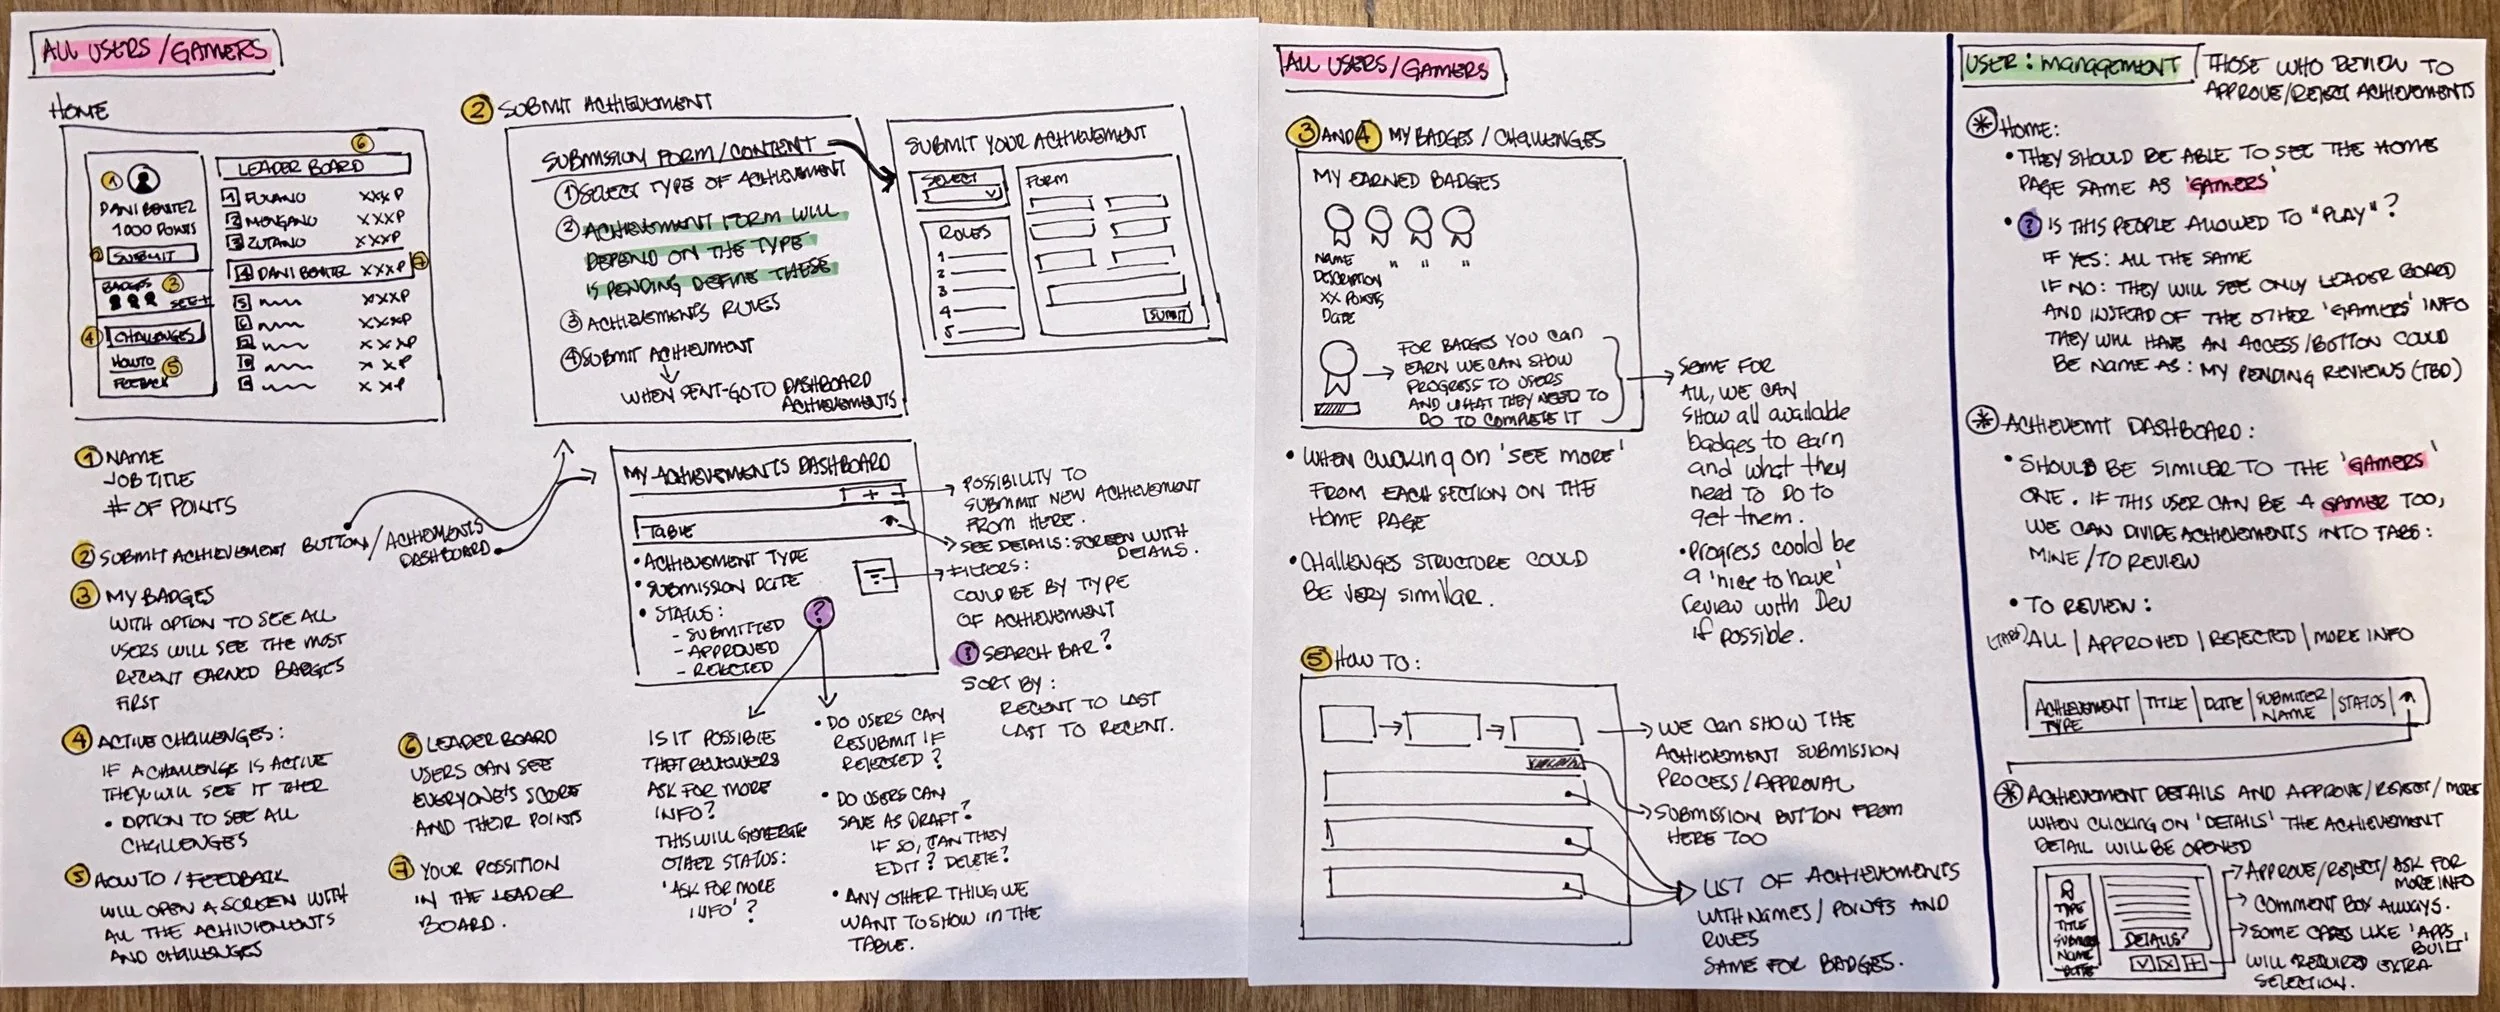 ALL USERS/GAMERS
HOME
1
DANI BENITEZ
1000 POINTS
2 SUBMIT
BADGES 3
SEE+
4 CHALLENGES
HOWTO 5
FEEDBACK
6
LEADER BOARD
1 FULANO XXXP
2 MENGANO XXXP
3 ZUTANO XXXP
4 DANI BENITEZ XXXP 7
5 XXXP
6 XXXP
XXXP
XXP
XXP
1 NAME
JOB TITLE
# OF POINTS
2 SUBMIT ACHIEVEMENT BUTTON/ACHIEMENTS
DASHBOARD
3 MY BADGES
WITH OPTION TO SEE ALL
USERS WILL SEE THE MOST
RECENT EARNED BADGES
FIRST
4 ACTIVE CHALLENGES:
IF A CHALLENGE IS ACTIVE
THEY'LL SEE IT THER
• OPTION TO SEE ALL
CHALLENGES
5 HOW TO/FEEDBACK
WILL OPEN A SCREEN WITH
ALL THE ACHIVIEMENTS
AND CHALLENGES
6 LEADER BOARD
USERS CAN SEE
EVERYONE'S SCORE
AND THEIR POINTS
7 YOUR POSSITION
IN THE LEADER
BOARD.
2 SUBMIT ACHIEVEMENT
SUBMISSION FORM/CONTENT
1 SELECT TYPE OF ACHIEVEMENT
2 ACHIEVEMENT FORM WILL
DEPEND ON THE TYPE
IS PENDING DEFINE THESE
3 ACHIEVEMENTS RULES
4 SUBMIT ACHIEVMENT
WHEN SENT-GO TO DASHBOARD
ACHIEVEMENTS
SUBMIT YOUR ACHIEVEMENT
SELECT
RULES
1
2
3
4
5
FORM
SUBMIT
MY ACHIEVEMENTS DASHBOARD
+
TABLE
• ACHIEVEMENT TYPE
• SUBMISSION DATE
• STATUS:
- SUBMITTED
- APPROVED
- REJECTED
?
POSSIBILITY TO
SUBMMIT NEW ACHIEVEMENT
FROM HERE.
SEE DETAILS: SCREEN WITH
DETAILS.
FILTERS:
COULD BE BY TYPE
OF ACHIEVEMENT
? SEARCH BAR?
SORT BY:
RECENT TO LAST
LAST TO RECENT.
IS IT POSSIBLE
THAT REVIEWERS
ASK FOR MORE
INFO?
THIS WILL GENERATE
OTHER STATUS:
'ASK FOR MORE
INFO'?
• DO USERS CAN
RESUBMIT IF
REJECTED?
• DO USERS CAN
SAVE AS DRAFT?
IF SO, CAN THEY
EDIT? DELETE?
• ANY OTHER THING WE
WANT TO SHOW IN THE
TABLE.
ALL USERS/GAMERS
3 AND 4 MY BADGES/CHALLENGES
MY EARNED BADGES
NAME
DESCRIPTION " " "
XX POINTS
DATE
FOR BADGES YOU CAN
EARN WE CAN SHOW
PROGRESS TO USERS
AND WHAT THEY NEED TO
DO TO COMPLETE IT
SAME FOR
ALL, WE CAN
SHOW all available
badges to earn
and what they
need to do to
get them.
• Progress could be
a 'nice to have'
review with Dev
if possible.
• WHEN CLICKING ON 'SEE MORE'
FROM EACH SECTION ON THE
HOME PAGE
• CHALLENGES STRUCTURE COULD
BE VERY SIMILAR.
5 HOW TO:
WE CAN SHOW THE
ACHIEVEMENT SUBMISSION
PROCESS/APPROVAL
SUBMISSION BUTTON FROM
HERE TOO
LIST OF ACHIEVEMENTS
WITH NAMES/POINTS AND
RULES
SAME FOR BADGES.
USER: MANAGEMENT / THOSE WHO REVIEW TO
APPROVE/REJECT ACHIEVEMENTS
* HOME:
• THEY SHOULD BE ABLE TO SEE THE HOME
PAGE SAME AS 'GAMERS'
• ? IS THIS PEOPLE ALLOWED TO "PLAY"?
IF YES: ALL THE SAME
IF NO: THEY WILL SEE ONLY LEADER BOARD
AND INSTEAD OF THE OTHER 'GAMERS' INFO
THEY WILL HAVE AN ACCESS/BUTTON COULD
BE NAME AS: MY PENDING REVIEWS (TBD)
* ACHIEVEMT DASHBOARD:
• SHOULD BE SIMILER TO THE 'GAMERS'
ONE. IF THIS USER CAN BE A GAMER TOO,
WE CAN DIVIDE ACHIEVEMENTS INTO TABS:
MINE/TO REVIEW
• TO REVIEW:
(TABS) ALL | APPROVED | REJECTED | MORE INFO
ACHIEVEMENT TYPE | TITLE | DATE | SUBMITER NAME | STATUS
* ACHIEVEMENT DETAILS AND APPROVE/REJECT/MORE
WHEN CLICKING ON 'DETAILS' THE ACHIEVEMENT
DETAIL WILL BE OPENED
TYPE
TITLE
NAME
DATE
DETAILS
APPROVE/REJECT/ASK FOR
MORE INFO
COMMENT BOX ALWAYS.
SOME CASES LIKE 'APPS
BUILT'
WILL REQUIRED EXTRA
SELECTION.